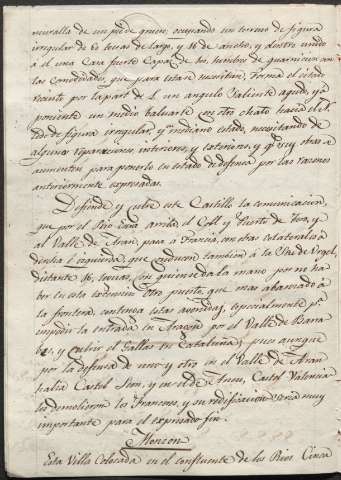 muralla de un pie de grueso, ocupando un terreno de figura
irregular de 60 tuesas de largo, y 16 de ancho, y dentro unido
á él una Casa fuerte Capaz de 600 hombres de guarnicion con
las comodidades, que para estas se necesitan, forma el citado
recinto por la parte de L un angulo saliente agudo, y a
poniente un medio baluarte con otro chato hacia el
de figura irregular, y en mediano estado, necesitando de
algunas reparaciones, interiores, y exteriores, y obras a
aumentar para ponerlo en estado de defensa por las razones
anteriormente expresadas.
Defiende y cubre este Castillo la comunicacion,
que por el Rio Esera arriba el Coll, y Puerto de y
al Valle de Aran, pasa a Francia, con otras colaterales, a
derecha e izquierda, que conducen tambien á la Seu de Urgel,
distante 16, leguas, con quien se da la mano por no ha-
ber en esta extension otro puesto, que mas abanzado á
la frontera, contenga estas avenidas, especialmente pa
impedir la entrada en Aragon por el Valle de Barra
bes, y cubrir el Pallas en Cataluña, pues aunque
por la defensa de uno y otro en el Valle de Aran
havia Castel Leon, y en el de Aneu, Castel Valencia
los demolieron los Franceses, y su redificacion seria muy
importante para el expresado fin.
Monzon
Esta Villa Colocada en el confluente de los Rios Cinca